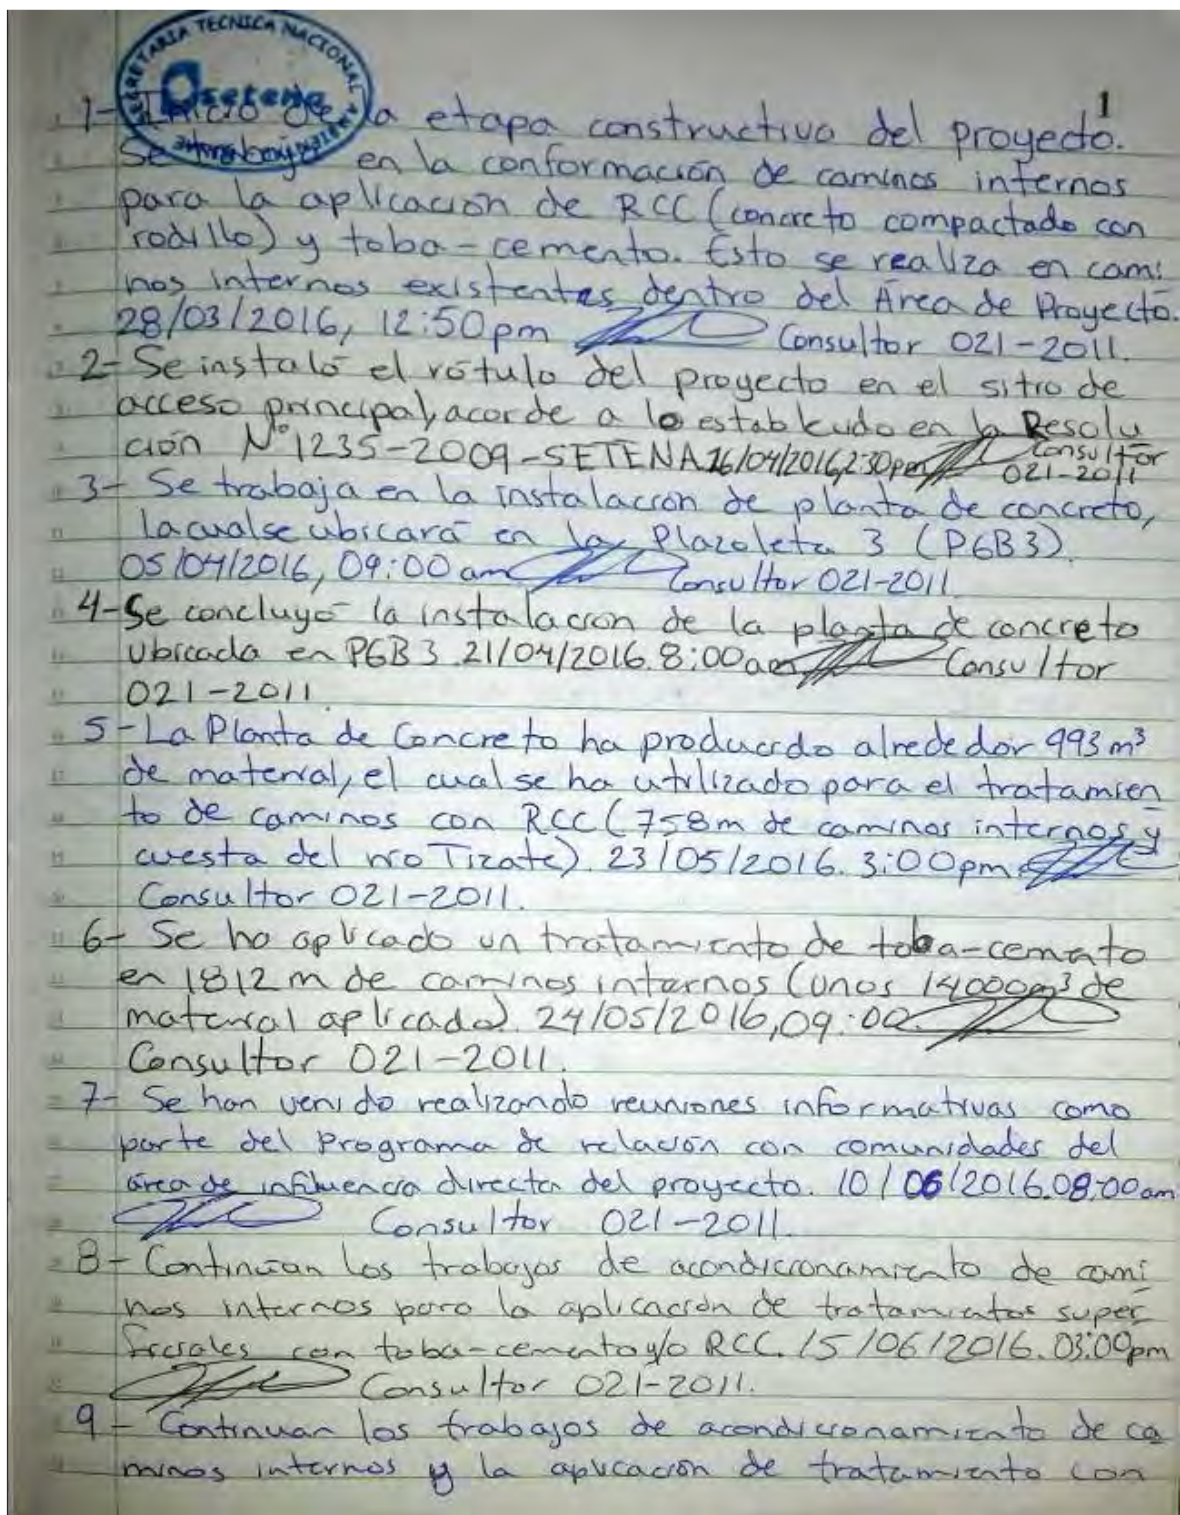 SECRETARIA TECNICA NACIONAL AMBIENTAL
setena
1
1- Inicio de la etapa constructiva del proyecto.
Se trabaja en la conformación de caminos internos
para la aplicación de RCC (concreto compactado con
rodillo) y toba-cemento. Esto se realiza en cami
nos internos existentes dentro del Área de Proyecto.
28/03/2016, 12:50pm Consultor 021-2011.
2- Se instaló el rótulo del proyecto en el sitio de
acceso principal, acorde a lo establecido en la Resolu
ción N° 1235-2009-SETENA 16/04/2016, 2:30pm Consultor
021-2011
3- Se trabaja en la instalación de planta de concreto,
la cual se ubicará en la Plazoleta 3 (PGB3).
05/04/2016, 09:00am Consultor 021-2011
4- Se concluyó la instalación de la planta de concreto
ubicada en PGB3. 21/04/2016. 8:00am Consultor
021-2011.
5- La Planta de Concreto ha producido alrededor 993 m³
de material, el cual se ha utilizado para el tratamien
to de caminos con RCC (758m de caminos internos y
cuesta del río Tizate). 23/05/2016. 3:00pm.
Consultor 021-2011.
6- Se ha aplicado un tratamiento de toba-cemento
en 1812 m de caminos internos (unos 14000m³ de
material aplicado). 24/05/2016, 09:00.
Consultor 021-2011.
7- Se han venido realizando reuniones informativas como
parte del Programa de relación con comunidades del
área de influencia directa del proyecto. 10/06/2016. 08:00am
Consultor 021-2011.
8- Continúan los trabajos de acondicionamiento de cami
nos internos para la aplicación de tratamientos super
ficiales con toba-cemento y/o RCC. 15/06/2016. 03:00pm
Consultor 021-2011.
9- Continuan los trabajos de acondicionamiento de ca
minos internos y la aplicación de tratamiento con